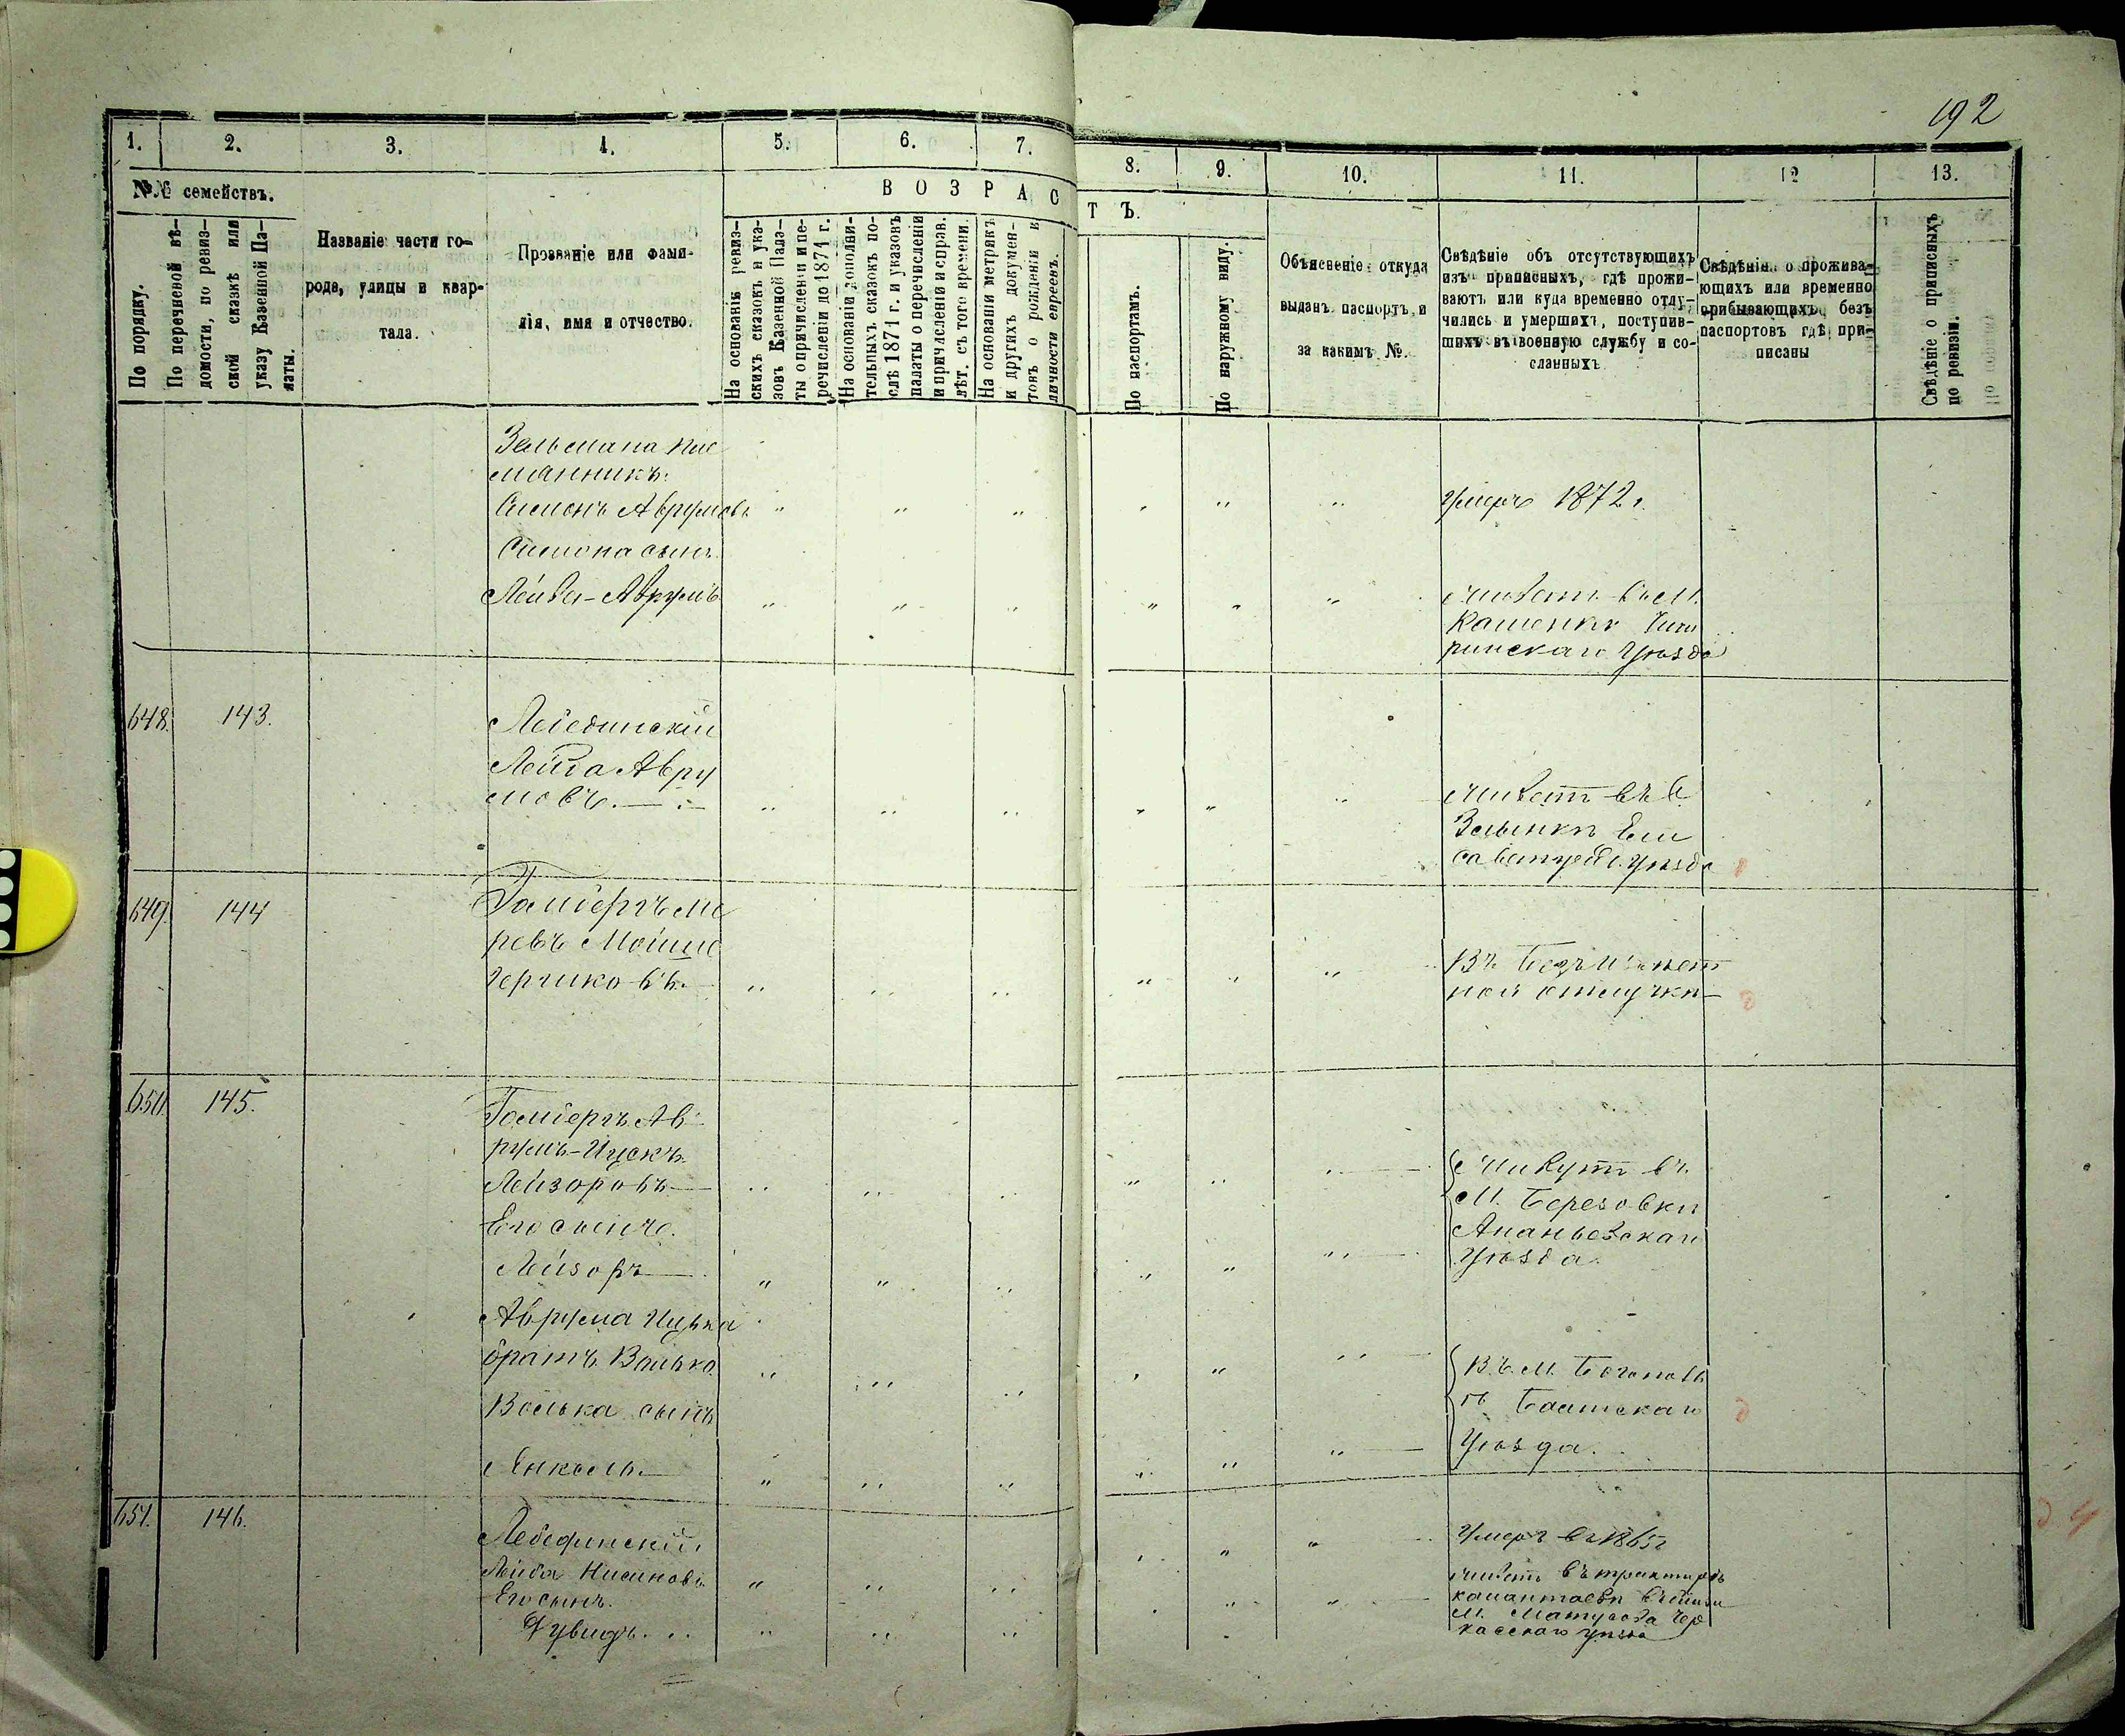 192
1. 2. 3. 4. 5. 6. 7. 8. 9. 10. 11. 12 13.
№№ семействъ.
По порядку.
По перечневой вѣ-
домости, по ревиз-
ской сказкѣ или
указу Казенной Па-
латы.
Названіе части го-
рода, улицы и квар-
тала.
Прозваніе или фами-
лія, имя и отчество.
ВОЗРАСТЪ.
На основаніи ревиз-
скихъ сказокъ и ука-
зовъ Казенной Пала-
ты о причисленіи и пе-
речисленіи до 1871 г.
На основаніи дополни-
тельныхъ сказокъ по-
слѣ 1871 г. и указовъ
палаты о перечисленіи
и причисленіи и справ.
лѣт. съ того времени.
На основаніи метрикъ
и другихъ докумен-
товъ о рожденіи и
личности евреевъ.
По паспортамъ.
По наружному виду.
Объясненіе откуда
выданъ паспортъ и
за какимъ №.
Свѣдѣніе объ отсутствующихъ
изъ приписныхъ, гдѣ прожи-
ваютъ или куда временно отлу-
чились и умершихъ, поступив-
шихъ въ военную службу и со-
сланныхъ
Свѣдѣнія о прожива-
ющихъ или временно
прибывающихъ безъ
паспортовъ гдѣ при-
писаны
Свѣдѣніе о приписныхъ
по ревизіи.
Зельмана пле
мянникъ.
Симонъ Аврумовъ " " " " " " умеръ 1872 г.
Симона сынъ
Лейба-Аврумъ " " " " " " живетъ въ М.
Каменкѣ Чиги
ринскаго Уѣзда
648. 143. Лебединскій
Лейба Авру
мовъ. " " " " " " живетъ въ С.
Елисаветгр. уѣзда
649. 144 Гамбергъ
Мошко
Гершковъ. " " " " " " Въ Безъизвѣст
ной отлучкѣ
650. 145. Гамбергъ Ав
румъ-Ицекъ
Лейзоровъ " " " " " " живутъ въ
М. Березовки
Ананьевскаго
Уѣзда.
Его сынъ.
Лейзоръ " " " " " "
Аврума Ицька
братъ Волько " " " " " " Въ М.
Балтскаго
Уѣзда.
Волька сынъ
Янкель " " " " " "
651. 146. Лебединскій
Лейба Нисиновъ " " " " " " Умеръ въ 1865 г
Его сынъ.
Дувидъ. " " " " " живетъ въ трактирѣ
М. Матусова Чер
касскаго уѣзда